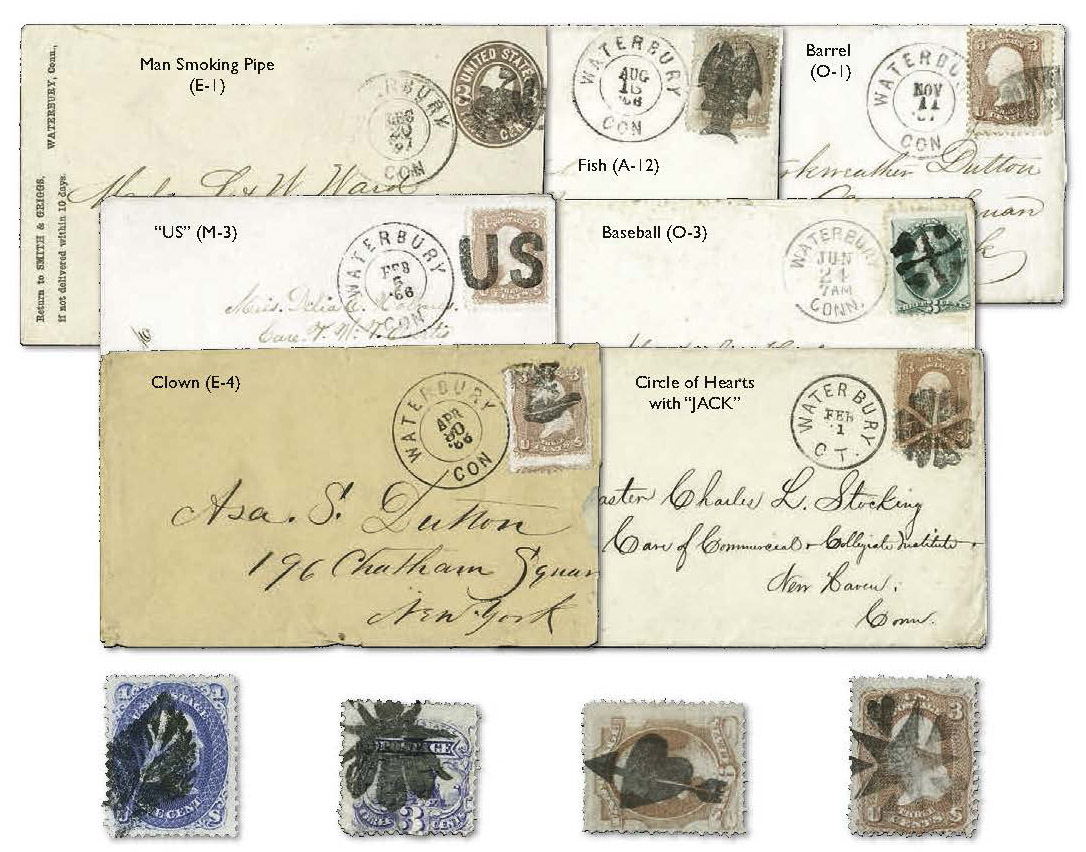 Return to SMITH & GRIGGS,
WATERBURY, Conn.,
if not delivered within 10 days.
Man Smoking Pipe
(E-1)
ERBURY
20
CON
UNITED STATE
WATERBURY
AUG
18
'68
CON
Fish (A-12)
Barrel
(O-1)
WATERBU
NOV
11
CON
3
Dutton
"US" (M-3)
WATERBURY
FEB
5
'66
CON
US
Miss. Delia
Care
Baseball (O-3)
WATERBURY
JUN
24
7AM
CONN.
Clown (E-4)
WATERBURY
APR
30
'66
CON
3
U S
Asa. S. Dutton
196 Chatham Squar
New York
Circle of Hearts
with "JACK"
WATERBURY
FEB
1
CT.
aster Charles L. Stocking
Care of Commercial & Collegiate Institute
New Haven,
Conn.
1 1
E CENT
POSTAGE
3
3
U CENTS S